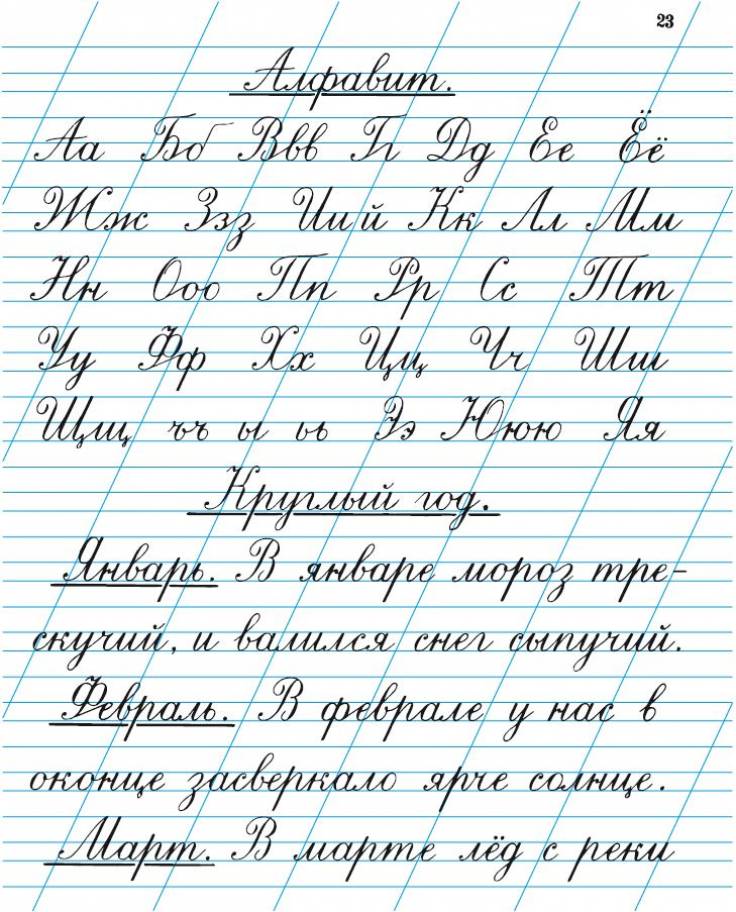 23
Алфавит.
Аа Бб Ввв Гг Дд Ее Ёё
Жж Ззз Ии й Кк Лл Мм
Нн Ооо Пп Рр Сс Тт
Уу Фф Хх Цц Чч Шш
Щщ ъъ ы ьь Ээ Ююю Яя
Круглый год.
Январь. В январе мороз тре-
скучий, и валился снег сыпучий.
Февраль. В феврале у нас в
оконце засверкало ярче солнце.
Март. В марте лёд с реки